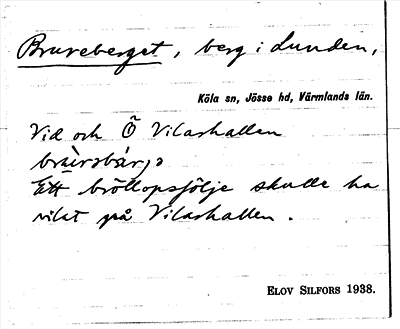 Bruveberget, berg i Lunden,
Köla sn, Jösse hd, Värmlands län.
Vid och Ö Vilarhallen
Ett bröllopsfölje skulle ha
vilat på Vilarhallen.
ELOV SILFORS 1938.